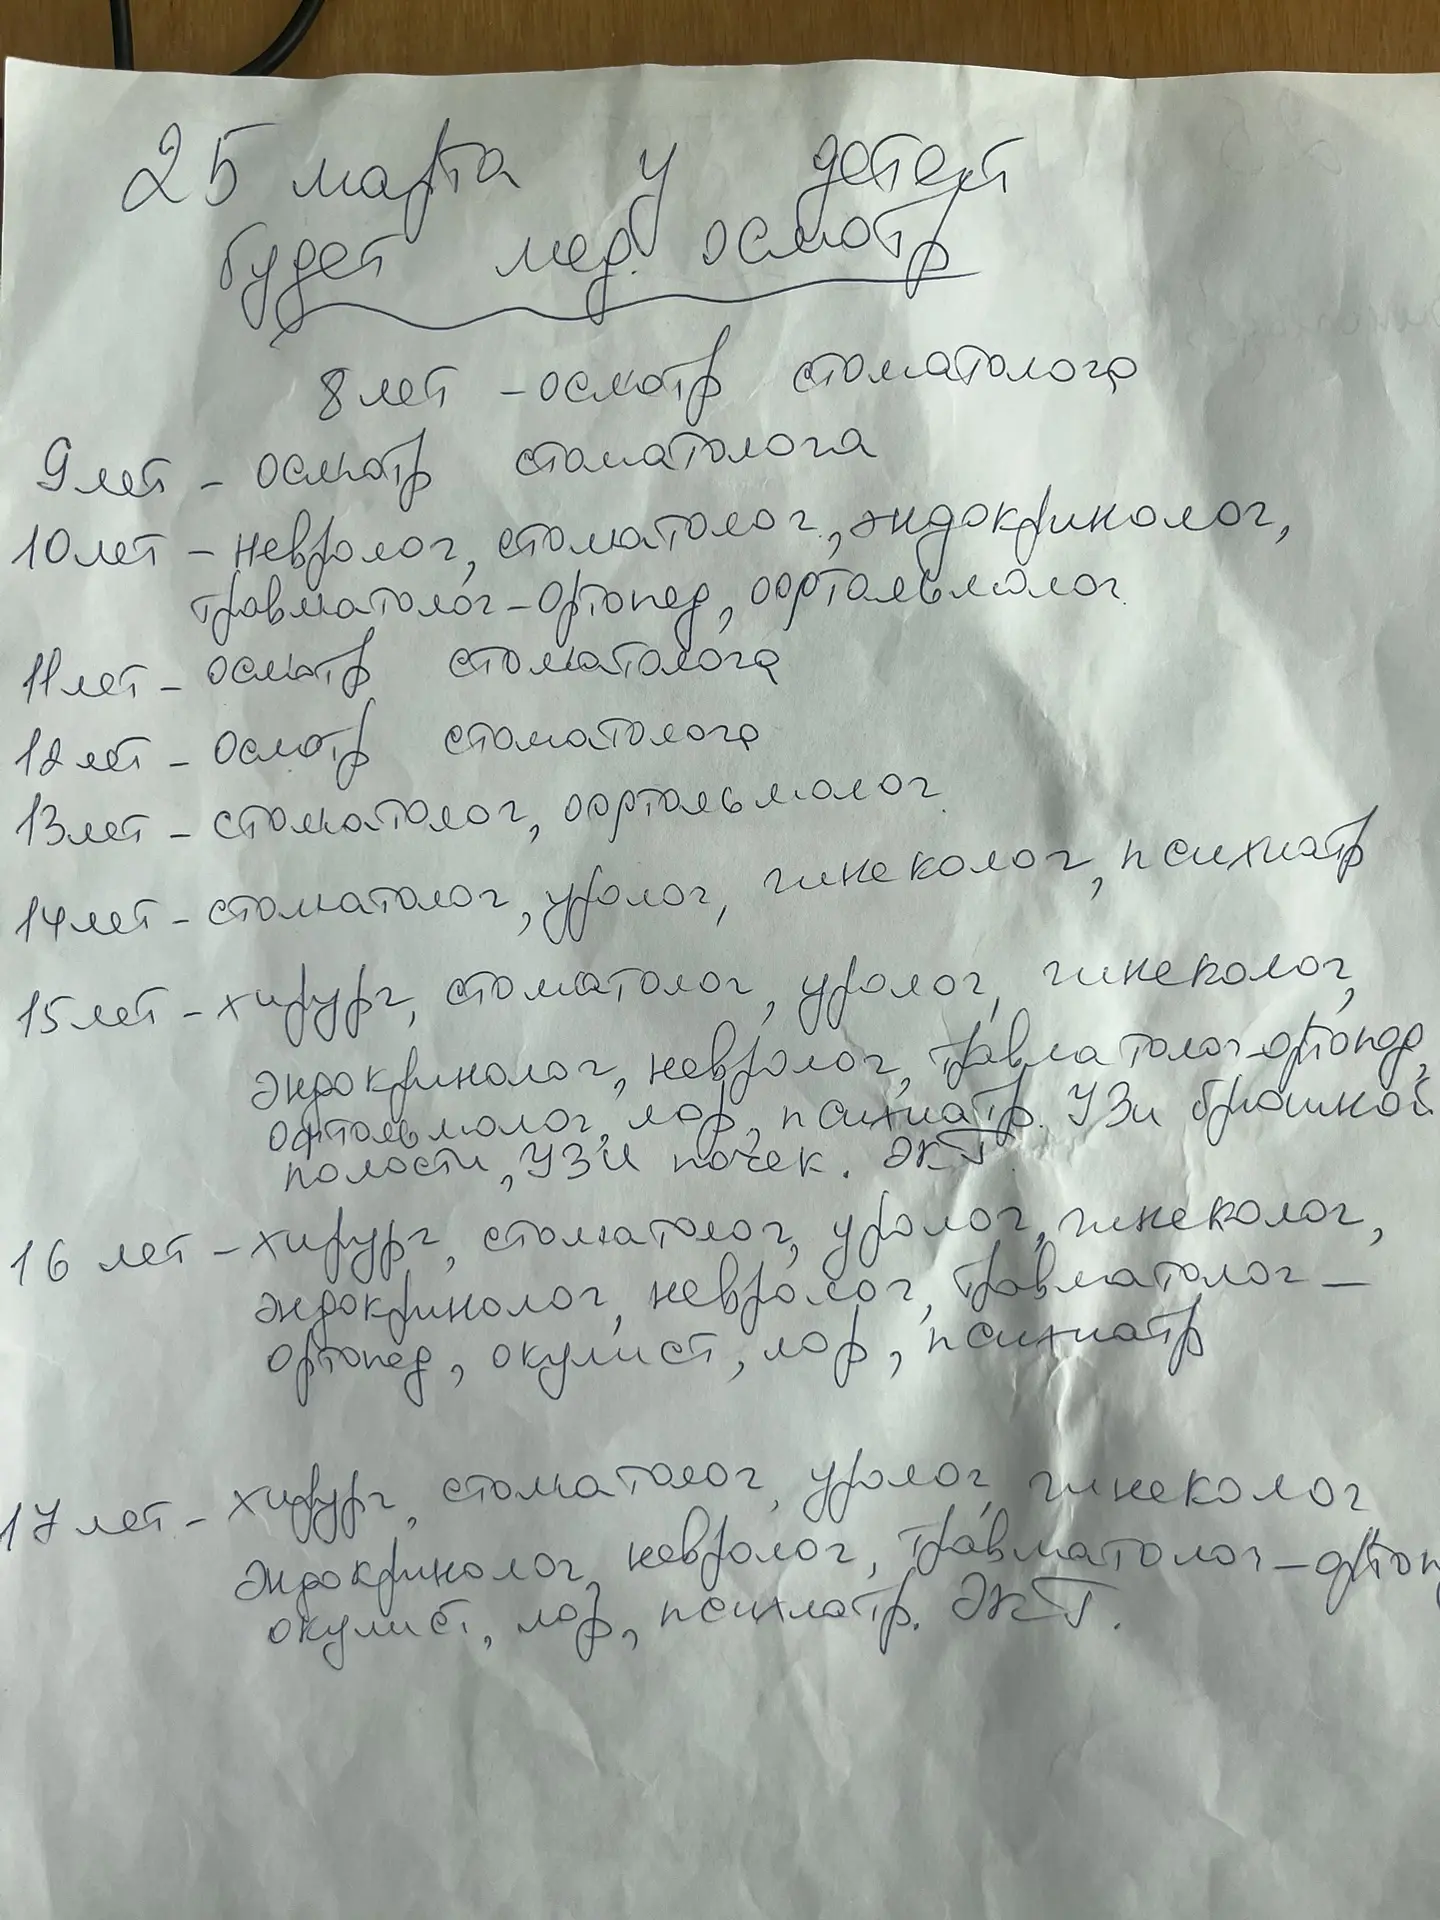 25 марта у детей
будет мед. осмотр
8 лет - осмотр стоматолога
9 лет - осмотр стоматолога
10 лет - невролог, стоматолог, эндокринолог,
травматолог-ортопед, офтальмолог.
11 лет - осмотр стоматолога
12 лет - осмотр стоматолога
13 лет - стоматолог, офтальмолог.
14 лет - стоматолог, уролог, гинеколог, психиатр
15 лет - хирург, стоматолог, уролог, гинеколог,
эндокринолог, невролог, травматолог-ортопед,
офтальмолог, лор, психиатр. УЗи брюшной
полости, УЗИ почек. ЭКГ.
16 лет - хирург, стоматолог, уролог, гинеколог,
эндокринолог, невролог, травматолог -
ортопед, окулист, лор, психиатр
17 лет - хирург, стоматолог, уролог, гинеколог
эндокринолог, невролог, травматолог - ортоп
окулист, лор, психиатр. ЭКГ.